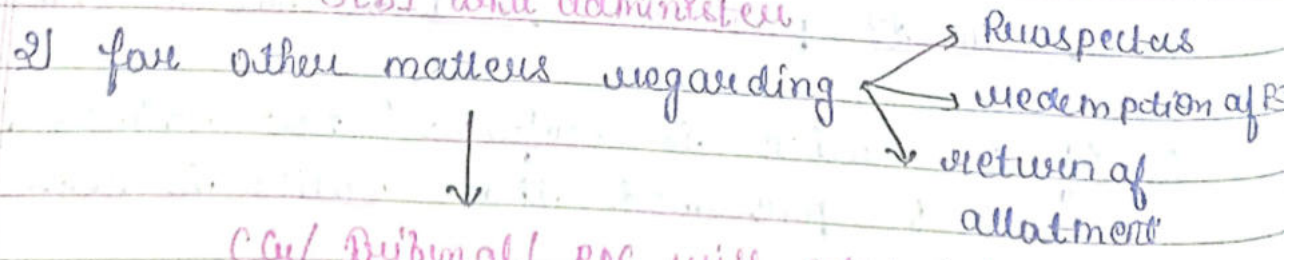 SEBI will administer.
2) for other matters regarding → Prospectus
→ redemption of PS
→ return of
allotment
CG/ Tribunal/ ROC will